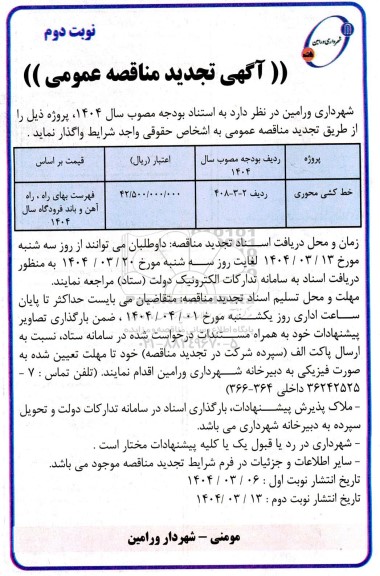 نوبت دوم
شهرداری ورامین
(( آگهی تجدید مناقصه عمومی ))
شهرداری ورامین در نظر دارد به استناد بودجه مصوب سال ۱۴۰۴، پروژه ذیل را
از طریق تجدید مناقصه عمومی به اشخاص حقوقی واجد شرایط واگذار نماید .
پروژه
ردیف بودجه مصوب سال ۱۴۰۴
اعتبار (ریال)
قیمت بر اساس
خط کشی محوری
ردیف ۲-۳-۴۰۸
۴۲/۵۰۰/۰۰۰/۰۰۰
فهرست بهای راه ، راه
آهن و باند فرودگاه سال
۱۴۰۴
زمان و محل دریافت اسناد تجدید مناقصه: داوطلبان می توانند از روز سه شنبه
مورخ ۱۳ / ۰۳ / ۱۴۰۴ لغایت روز سه شنبه مورخ ۲۰ / ۰۳ / ۱۴۰۴ به منظور
دریافت اسناد به سامانه تدارکات الکترونیک دولت (ستاد) مراجعه نمایند.
مهلت و محل تسلیم اسناد تجدید مناقصه: متقاضیان می بایست حداکثر تا پایان
ساعت اداری روز یکشنبه مورخ ۰۱ / ۰۴ / ۱۴۰۴ ، ضمن بارگذاری تصاویر
پیشنهادات خود به همراه مستندات درخواست شده در سامانه ستاد، نسبت به
ارسال پاکت الف (سپرده شرکت در تجدید مناقصه) خود تا مهلت تعیین شده به
صورت فیزیکی به دبیرخانه شهرداری ورامین اقدام نمایند. (تلفن تماس : ۷ -
۳۶۲۴۲۵۲۵ داخلی ۳۶۴-۳۶۶)
- ملاک پذیرش پیشنهادات، بارگذاری اسناد در سامانه تدارکات دولت و تحویل
سپرده به دبیرخانه شهرداری می باشد.
- شهرداری در رد یا قبول یک یا کلیه پیشنهادات مختار است .
- سایر اطلاعات و جزئیات در فرم شرایط تجدید مناقصه موجود می باشد.
تاریخ انتشار نوبت اول : ۰۶ / ۰۳ / ۱۴۰۴
تاریخ انتشار نوبت دوم : ۱۳ / ۰۳ / ۱۴۰۴
مومنی – شهردار ورامین